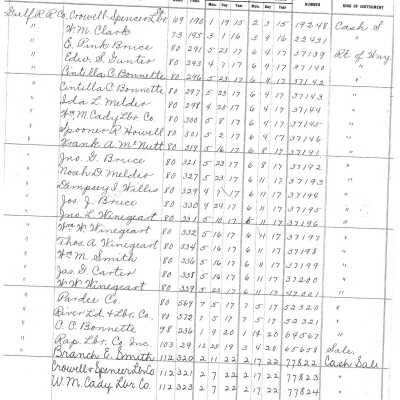 NUMBER KIND OF INSTRUMENT
Mo. Day Year Mo. Day Year
Gulf R R Co. Crowell Spencer Lbr. Co 69 190 1 19 15 2 3 15 19248 Cash S
" W.M. Clark 73 195 3 1 16 3 9 16 22431 "
" E. Pink Bruce 80 291 5 23 17 6 4 17 37139 Rt of Way
" Edw. S. Gunter 80 293 4 7 17 6 4 17 37140 "
" Cintilla C. Bonnette 80 296 5 23 17 6 4 17 37142 "
" Cintilla C. Bonnette 80 297 5 23 17 6 4 17 37143 "
" Ida L. Melder 80 298 4 20 17 6 4 17 37144 "
" Wm. M. Cady Lbr Co. 80 300 5 8 17 6 4 17 37145 "
" Spooner R Howell 80 301 5 2 17 6 4 17 37146 "
" Frank A McNutt 80 319 5 16 17 6 8 17 37191 "
" Jno. G. Bruce 80 321 5 23 17 6 8 17 37192 "
" Noah D. Melder 80 327 5 23 17 6 11 17 37193 "
" Dempsey I Willis 80 329 4 7 17 6 11 17 37194 "
" Jos. J. Bruce 80 330 4 24 17 6 11 17 37195 "
" Jno. L. Winegeart 80 331 5 10 17 6 11 17 37196 "
" Wm W Winegeart 80 332 5 16 17 6 11 17 37197 "
" Thos. A Winegeart 80 334 5 16 17 6 11 17 37198 "
" Wm M. Smith 80 336 5 16 17 6 11 17 37199 "
" Jas. G. Carter 80 338 5 16 17 6 11 17 37200 "
" W W Winegeart 80 339 5 23 17 6 11 17
" Pardee Co. 80 569 7 5 17 7 5 17 52320 "
" River Ld. & Lbr. Co. 80 572 7 5 17 7 5 17 52321 "
" C. C. Bonnette 98 236 1 9 20 1 14 20 64567 "
" Rap. Lbr. Co. Inc. 103 29 12 20 19 3 4 20 65608 Sale
" Branch E. Smith 112 320 2 11 22 2 17 22 77822 Cash Sale
" Crowell & Spencer Lbr Co. 112 321 2 7 22 2 17 22 77823 "
" W.M. Cady Lbr Co. 112 323 2 7 22 2 17 22 77824 "